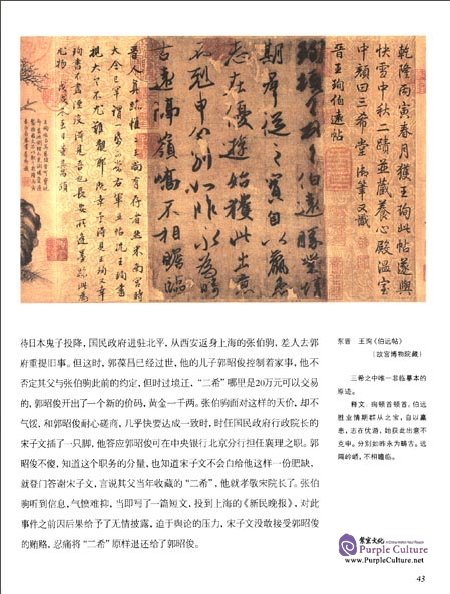 乾隆丙寅春月獲王珣此帖遂與
快雪中秋二蹟並藏養心殿溫室
中顏曰三希堂御筆又識
晉王珣伯遠帖
珣頓首頓首伯遠勝業情
期群從之寶自以羸患
志在優遊始獲此出意
不剋申分別如昨永為疇
古遠隔嶺嶠不相瞻臨
晉人真跡惟二王尚有存者然米南宮時
大令已罕謂一紙可當右軍五帖況王珣書
視大令不尤難覯耶既幸予得見王珣又幸
珣書不盡湮沒得見吾也長安所逢墨跡此為
尤物戊戌冬至日董其昌題
待日本鬼子投降，国民政府进驻北平，从西安返身上海的张伯驹，差人去郭
府重提旧事。但这时，郭葆昌已经过世，他的儿子郭昭俊控制着家事，他不
否定其父与张伯驹此前的约定，但时过境迁，“二希”哪里是20万元可以交易
的，郭昭俊开出了一个新的价码，黄金一千两。张伯驹面对这样的天价，却不
气馁，和郭昭俊耐心磋商。几乎快要达成一致时，时任国民政府行政院长的
宋子文插了一只脚，他答应郭昭俊可在中央银行北京分行担任襄理之职。郭
昭俊不傻，知道这个职务的分量，也知道宋子文不会白给他这样一份肥缺，
就登门答谢宋子文，言说其父当年收藏的“二希”，他就孝敬宋院长了。张伯
驹听到信息，气愤难抑，当即写了一篇短文，投到上海的《新民晚报》，对此
事件之前因后果给予了无情披露，迫于舆论的压力，宋子文没敢接受郭昭俊
的贿赂，忍痛将“二希”原样退还给了郭昭俊。
东晋 王珣《伯远帖》
（故宫博物院藏）
三希之中唯一非临摹本的
原迹。
释文：珣顿首顿首，伯远
胜业情期群从之宝，自以羸
患，志在优游，始获此出意不
克申。分别如昨永为畴古。远
隔岭峤，不相瞻临。
紫宝文化
Purple Culture
www.PurpleCulture.net
43